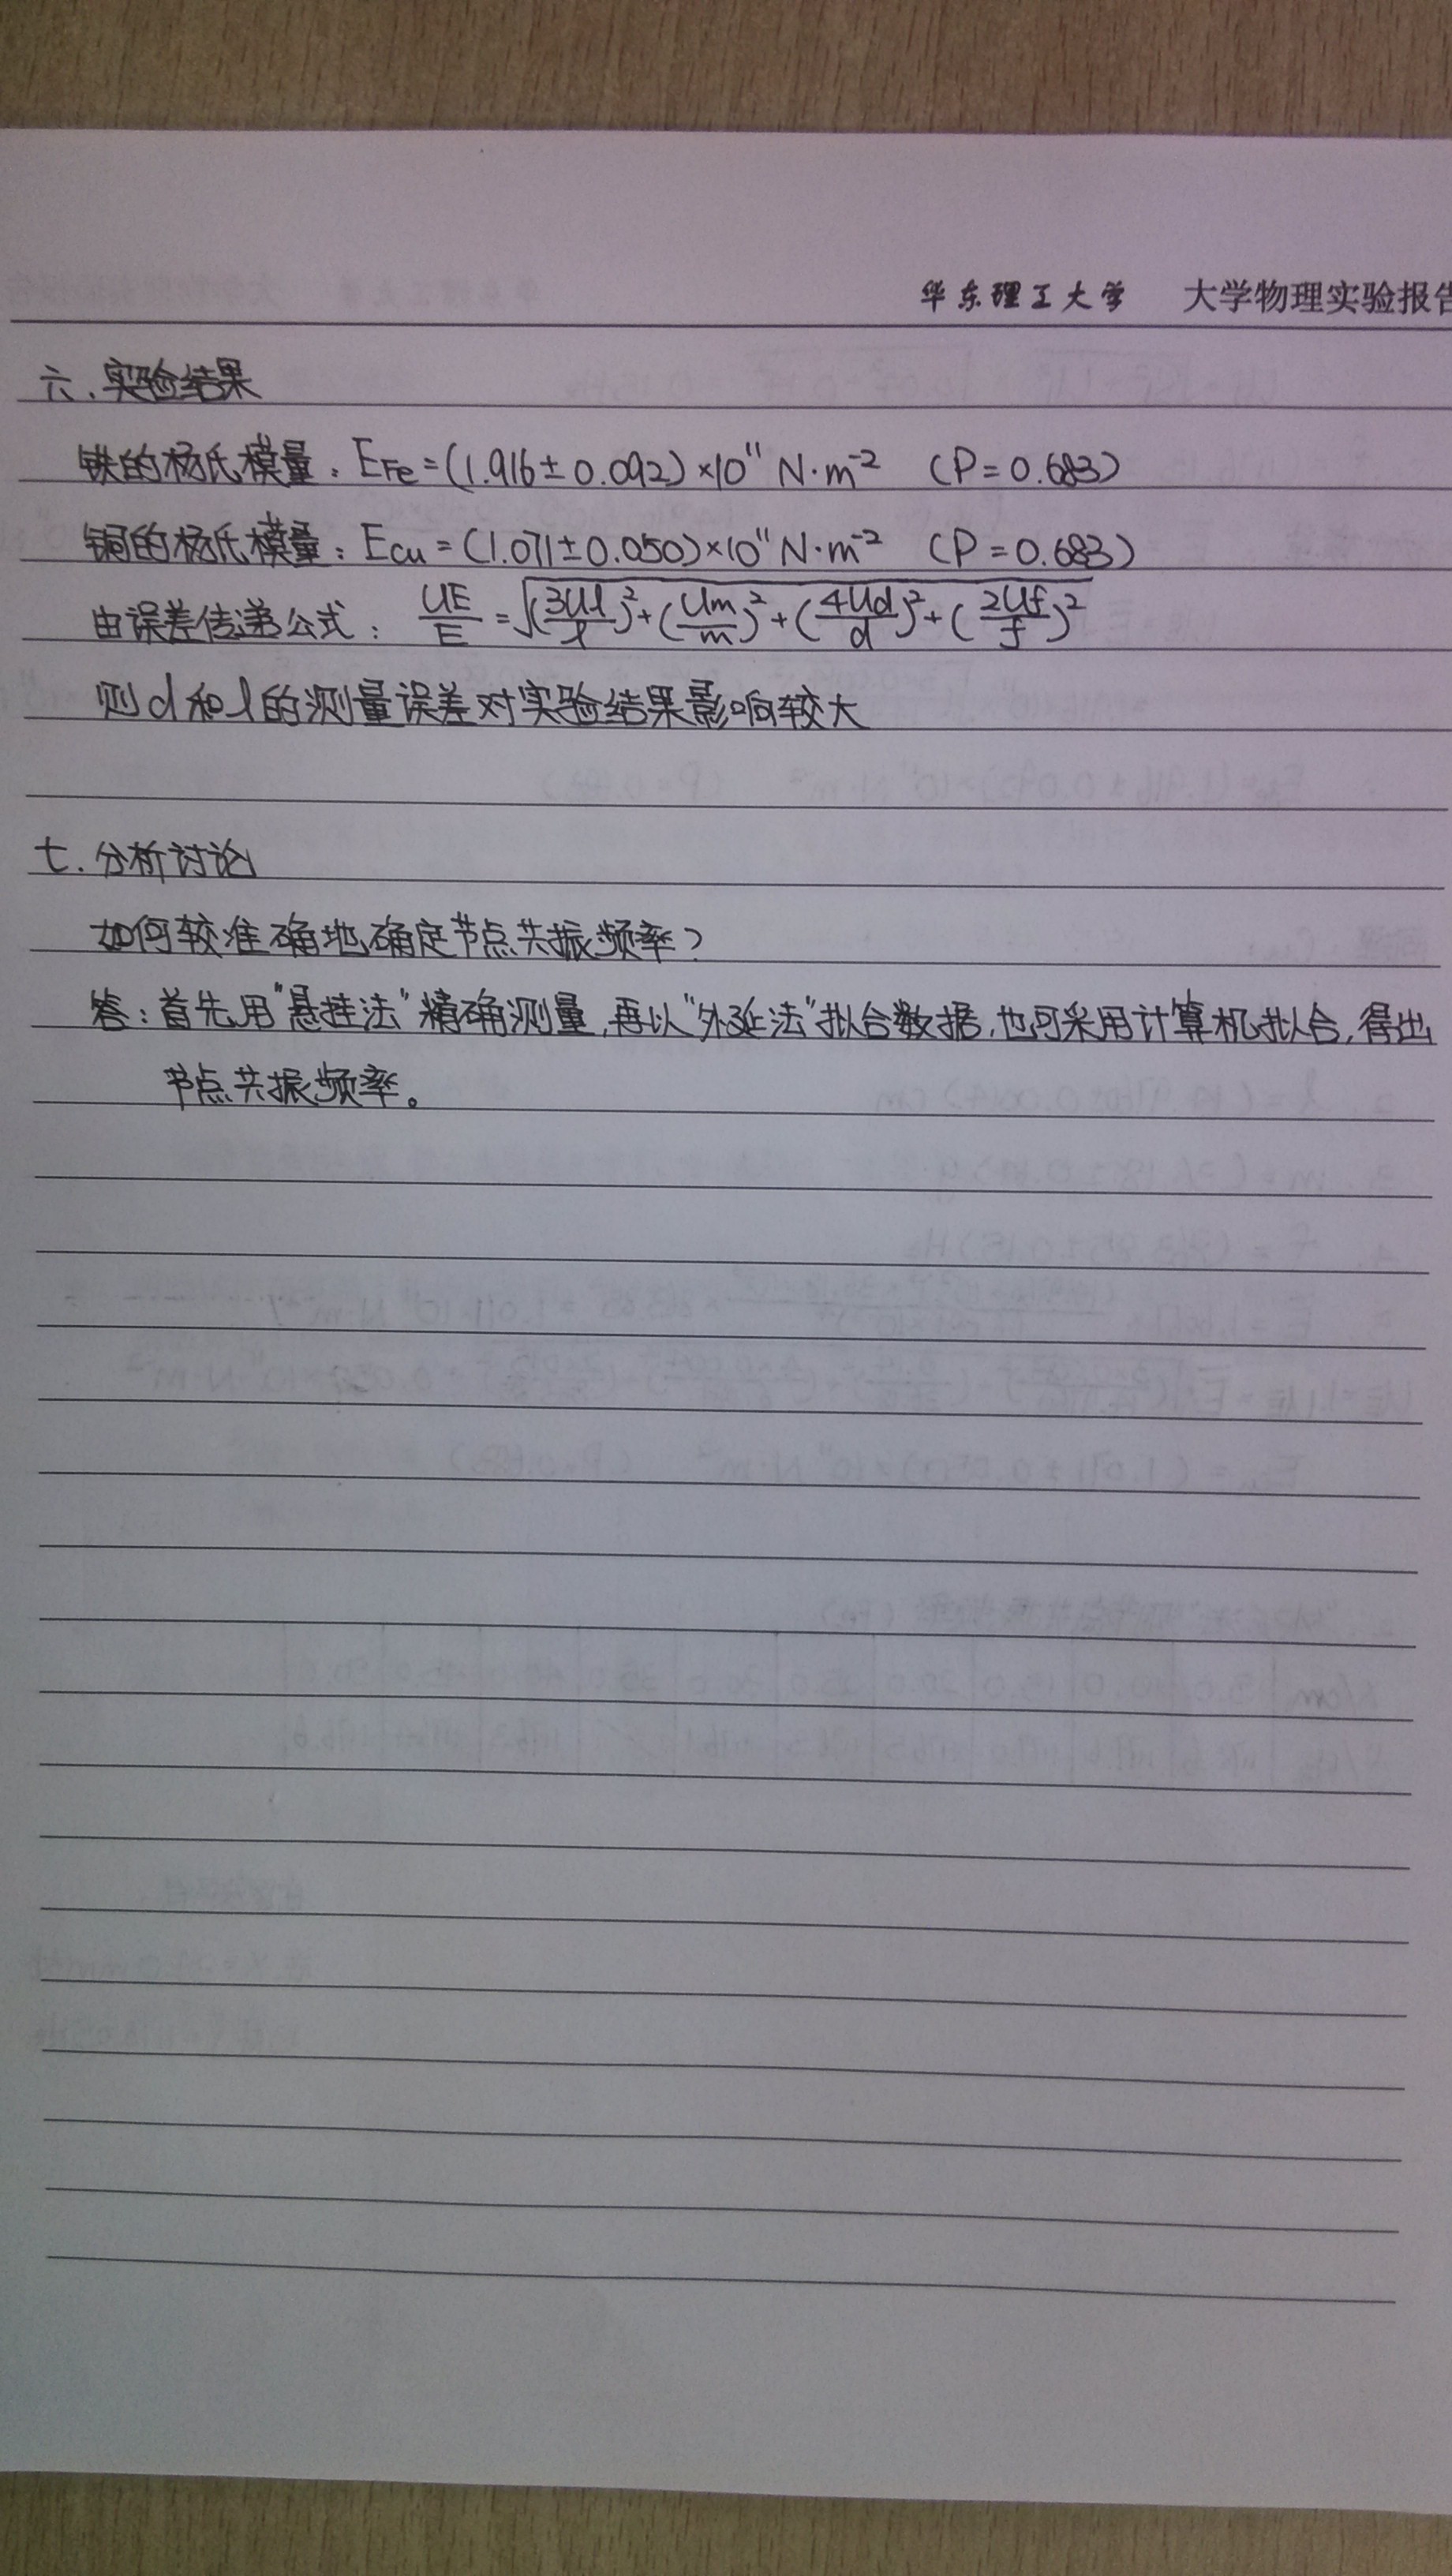 华东理工大学 大学物理实验报告
六.实验结果
铁的杨氏模量：E_Fe=(1.916±0.092)×10¹¹ N·m⁻² (P=0.683)
铜的杨氏模量：E_Cu=(1.071±0.050)×10¹¹ N·m⁻² (P=0.683)
由误差传递公式：U_E/E=√((3U_l/l)²+(U_m/m)²+(4U_d/d)²+(2U_f/f)²)
则d和l的测量误差对实验结果影响较大
七.分析讨论
如何较准确地确定节点共振频率？
答：首先用"悬挂法"精确测量,再以"外延法"拟合数据,也可采用计算机拟合,得出
节点共振频率。